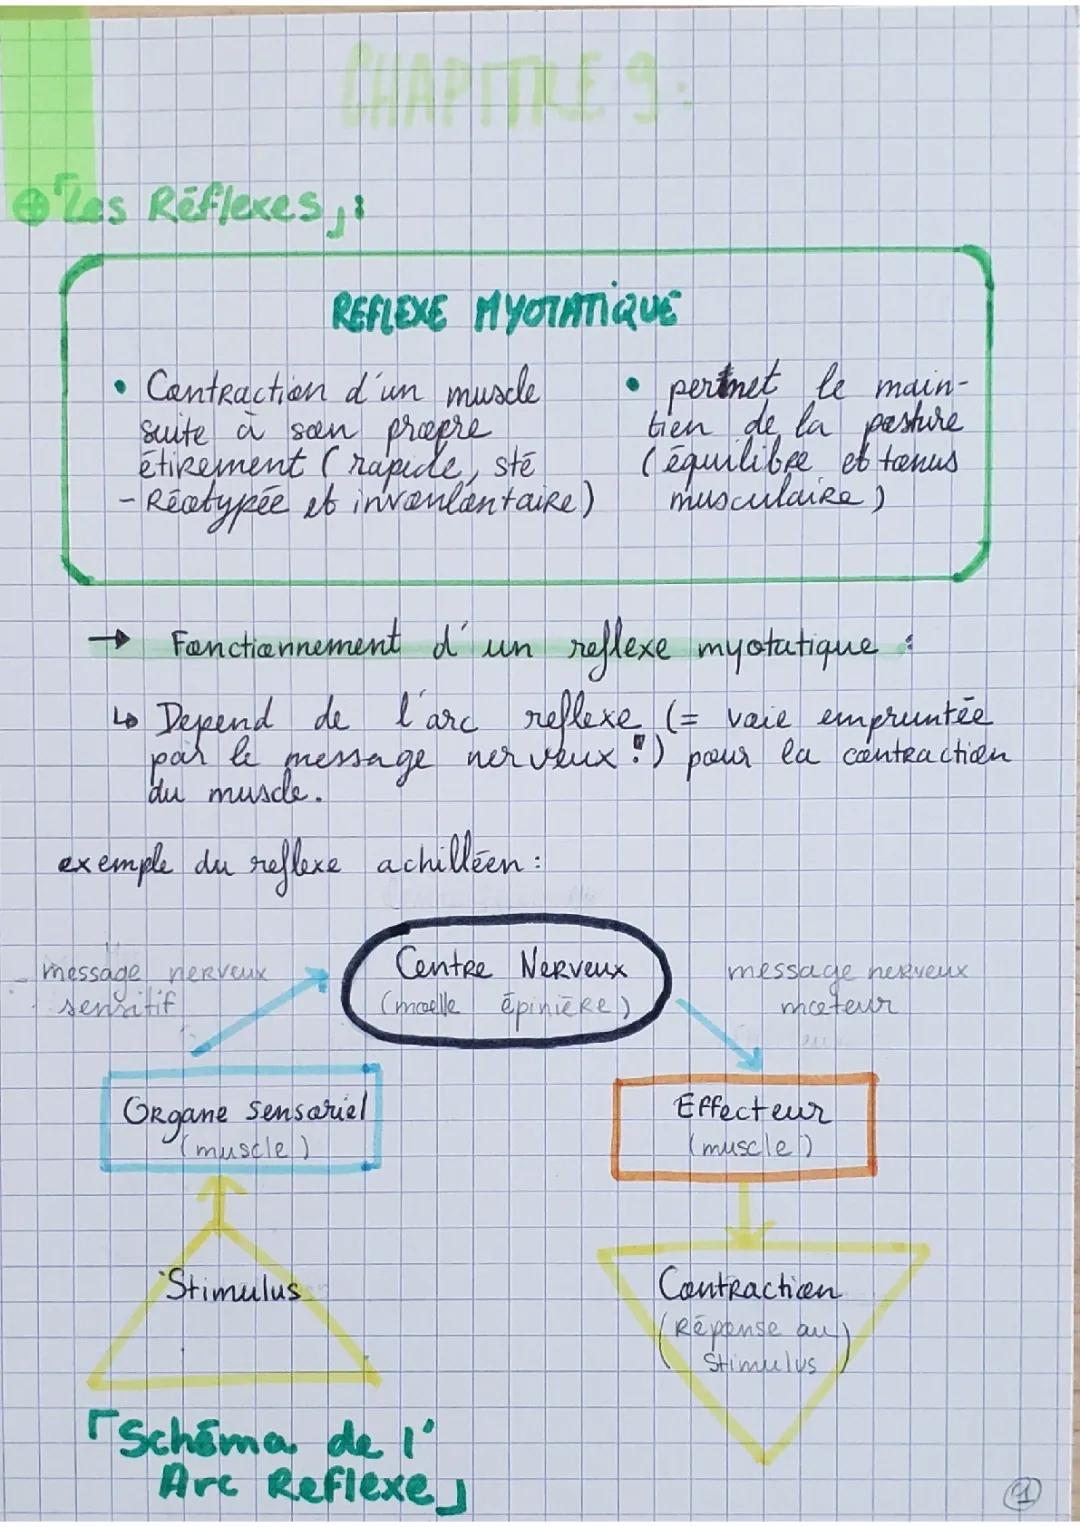 CHAPITRE 9:
⊕「Les Réflexes」:
REFLEXE MYOTATIQUE
• Contraction d'un muscle
suite à son propre
étirement (rapide, sté
-Réotypée et involontaire)
• permet le main-
tien de la posture
(équilibre et tonus
musculaire)
→ Fonctionnement d'un reflexe myotatique :
↳ Depend de l'arc reflexe (= voie empruntée
par le message nerveux !) pour la contraction
du muscle.
exemple du reflexe achilléen :
message nerveux
sensitif
Centre Nerveux
(moelle épinière)
message nerveux
moteur
Organe sensoriel
(muscle)
Effecteur
(muscle)
Stimulus
Contraction
(Réponse au
Stimulus)
「Schéma de l'
Arc Reflexe」
1